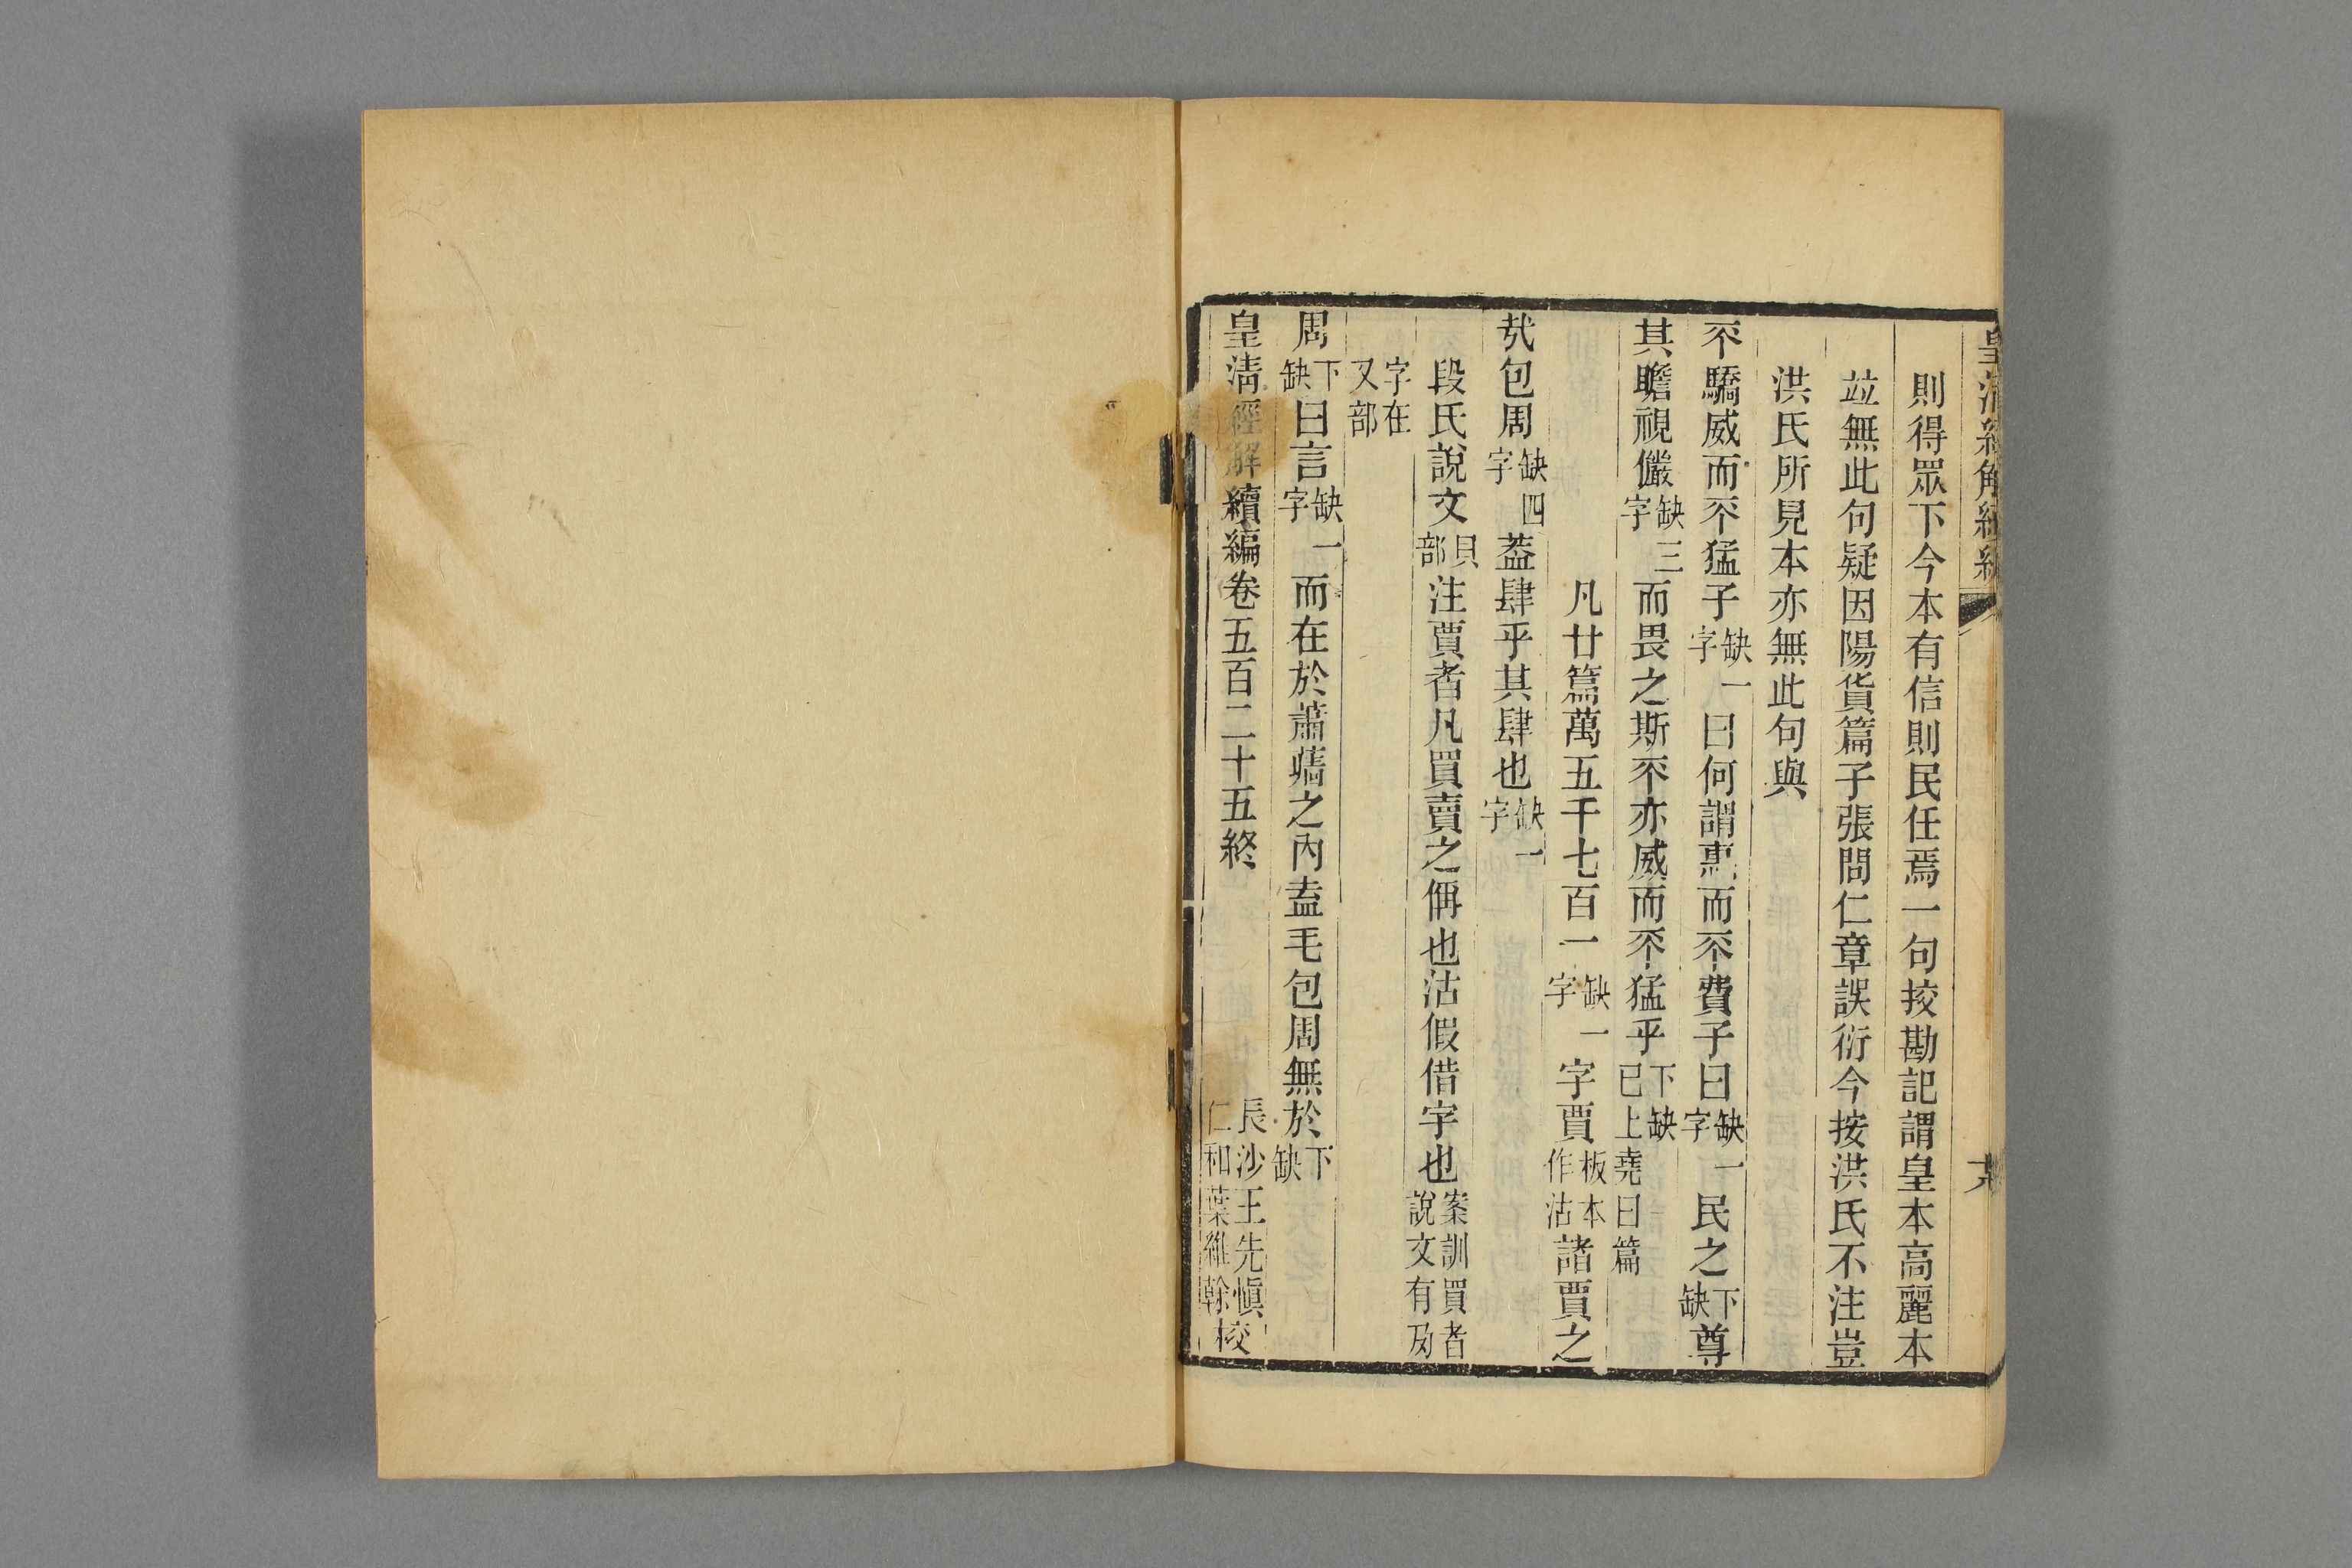 皇清經解續編
則得眾下今本有信則民任焉一句挍勘記謂皇本高麗本
竝無此句疑因陽貨篇子張問仁章誤衍今按洪氏不注豈
洪氏所見本亦無此句與
不驕威而不猛子缺一字曰何謂惠而不費子曰缺一字民之下缺尊
其瞻視儼缺三字而畏之斯不亦威而不猛乎下缺已上堯曰篇
凡廿篇萬五千七百一缺一字字賈板本作沽諸賈之
㢤包周缺四字葢肆乎其肆也缺一字
段氏說文貝部注賈者凡買賣之偁也沽假借字也案訓買者說文有夃
字在又部
周下缺曰言缺一字而在於蕭牆之內盍毛包周無於下缺
皇清經解續編卷五百二十五終
長沙王先慎
仁和葉維幹校